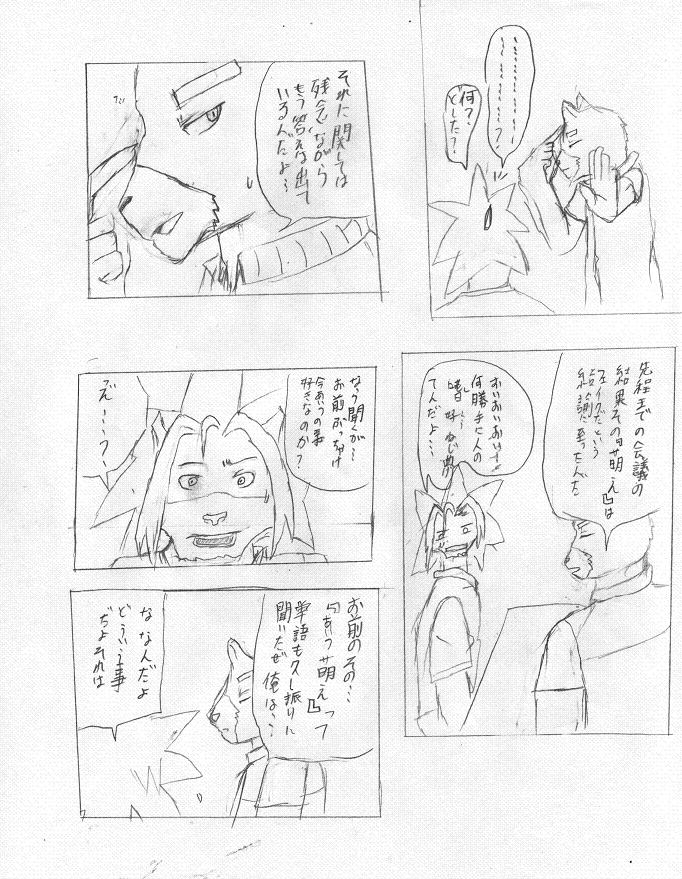 何?・
どした?
それに関しては
残念ながら
もう答えは出て
いるんだよ…
先程までの会議の
結果その『萌え』は
フェイクだという
結論に至ったんだ
おいおいおい!
何勝手に人の
てんだよ…
なぁ聞くが…
お前ぶっちゃけ
今あいつの事
好きなのか?
えっ…?
お前のその…
『あっつ萌え』って
単語も久し振りに
聞いたが俺は、、
ななんだよ
どういう事
だよそれは